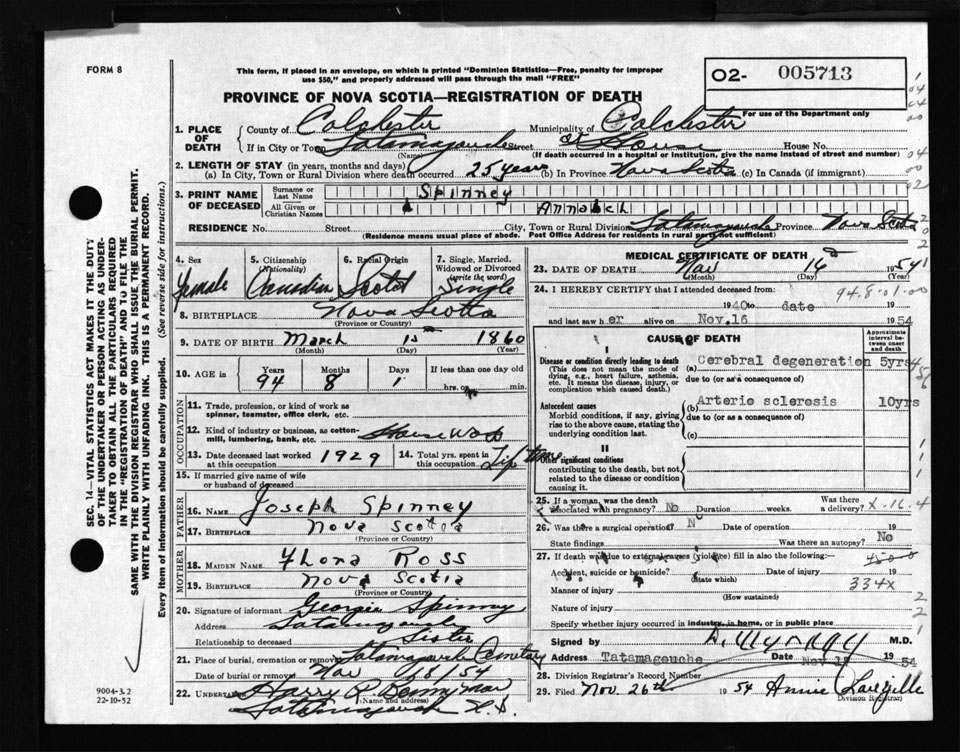 FORM 8
This form, if placed in an envelope, on which is printed "Dominion Statistics—Free, penalty for improper
use $50," and properly addressed will pass through the mail "FREE"
02- 005713
PROVINCE OF NOVA SCOTIA—REGISTRATION OF DEATH
For use of the Department only
1. PLACE OF DEATH
County of Colchester Municipality of Colchester
If in City or Town Tatamagouche Street at House House No.
(Name) (If death occurred in a hospital or institution, give the name instead of street and number)
2. LENGTH OF STAY (in years, months and days)
(a) In City, Town or Rural Division where death occurred 25 years (b) In Province Nova Scotia (c) In Canada (if immigrant)
3. PRINT NAME OF DECEASED
Surname or Last Name Spinney
All Given or Christian Names
RESIDENCE No. Street City, Town or Rural Division Tatamagouche Province Nova Scotia
(Residence means usual place of abode. Post Office Address for residents in rural parts not sufficient)
4. Sex Female
5. Citizenship (Nationality) Canadian
6. Racial Origin
7. Single, Married, Widowed or Divorced (write the word) Single
8. BIRTHPLACE Nova Scotia
(Province or Country)
9. DATE OF BIRTH March 15 1860
(Month) (Day) (Year)
10. AGE in Years Months Days If less than one day old
94 8 1 hrs. or min.
OCCUPATION
11. Trade, profession, or kind of work as spinner, teamster, office clerk, etc.
12. Kind of industry or business, as cotton-mill, lumbering, bank, etc. House Work
13. Date deceased last worked at this occupation 1929
14. Total yrs. spent in this occupation Life time
15. If married give name of wife or husband of deceased
FATHER
16. NAME Joseph Spinney
17. BIRTHPLACE Nova Scotia
(Province or Country)
MOTHER
18. MAIDEN NAME Flora Ross
19. BIRTHPLACE Nova Scotia
(Province or Country)
20. Signature of informant Georgie Spinney
Address Tatamagouche
Relationship to deceased Sister
21. Place of burial, cremation or removal Tatamagouche Cemetary
Date of burial or removal Nov 18/54
22. UNDERTAKER Harry P.
(Name and address)
Tatamagouche N.S.
MEDICAL CERTIFICATE OF DEATH
23. DATE OF DEATH Nov 16th 1954
(Month) (Day) (Year)
24. I HEREBY CERTIFY that I attended deceased from:
1940 to date
and last saw h er alive on Nov.16 1954
948-01-00
CAUSE OF DEATH
Approximate interval between onset and death
I
Disease or condition directly leading to death
(This does not mean the mode of dying, e.g., heart failure, asthenia, etc. It means the disease, injury, or complication which caused death.)
(a) Cerebral degeneration 5yrs
due to (or as a consequence of)
Antecedent causes
Morbid conditions, if any, giving rise to the above cause, stating the underlying condition last.
(b) Arterio sclerosis 10yrs
due to (or as a consequence of)
(c)
II
Other significant conditions
contributing to the death, but not related to the disease or condition causing it.
25. If a woman, was the death associated with pregnancy? No Duration weeks. Was there a delivery? X.16.4
26. Was there a surgical operation? N Date of operation 19
State findings Was there an autopsy? No
27. If death was due to external causes (violence) fill in also the following:
Accident, suicide or homicide? Date of injury 19
(State which)
Manner of injury 334X
(How sustained)
Nature of injury
Specify whether injury occurred in industry, in home, or in public place
Signed by M.D.
Address Tatamagouche Date Nov 17 1954
28. Division Registrar's Record Number
29. Filed Nov. 26th 1954 Annie
Division Registrar)
SEC. 14—VITAL STATISTICS ACT MAKES IT THE DUTY
OF THE UNDERTAKER OR PERSON ACTING AS UNDER-
TAKER TO OBTAIN ALL THE PARTICULARS REQUIRED
IN THE "REGISTRATION OF DEATH" AND TO FILE THE
SAME WITH THE DIVISION REGISTRAR WHO SHALL ISSUE THE BURIAL PERMIT.
WRITE PLAINLY WITH UNFADING INK. THIS IS A PERMANENT RECORD.
Every item of information should be carefully supplied. (See reverse side for instructions.)
9004-3.2
22-10-52